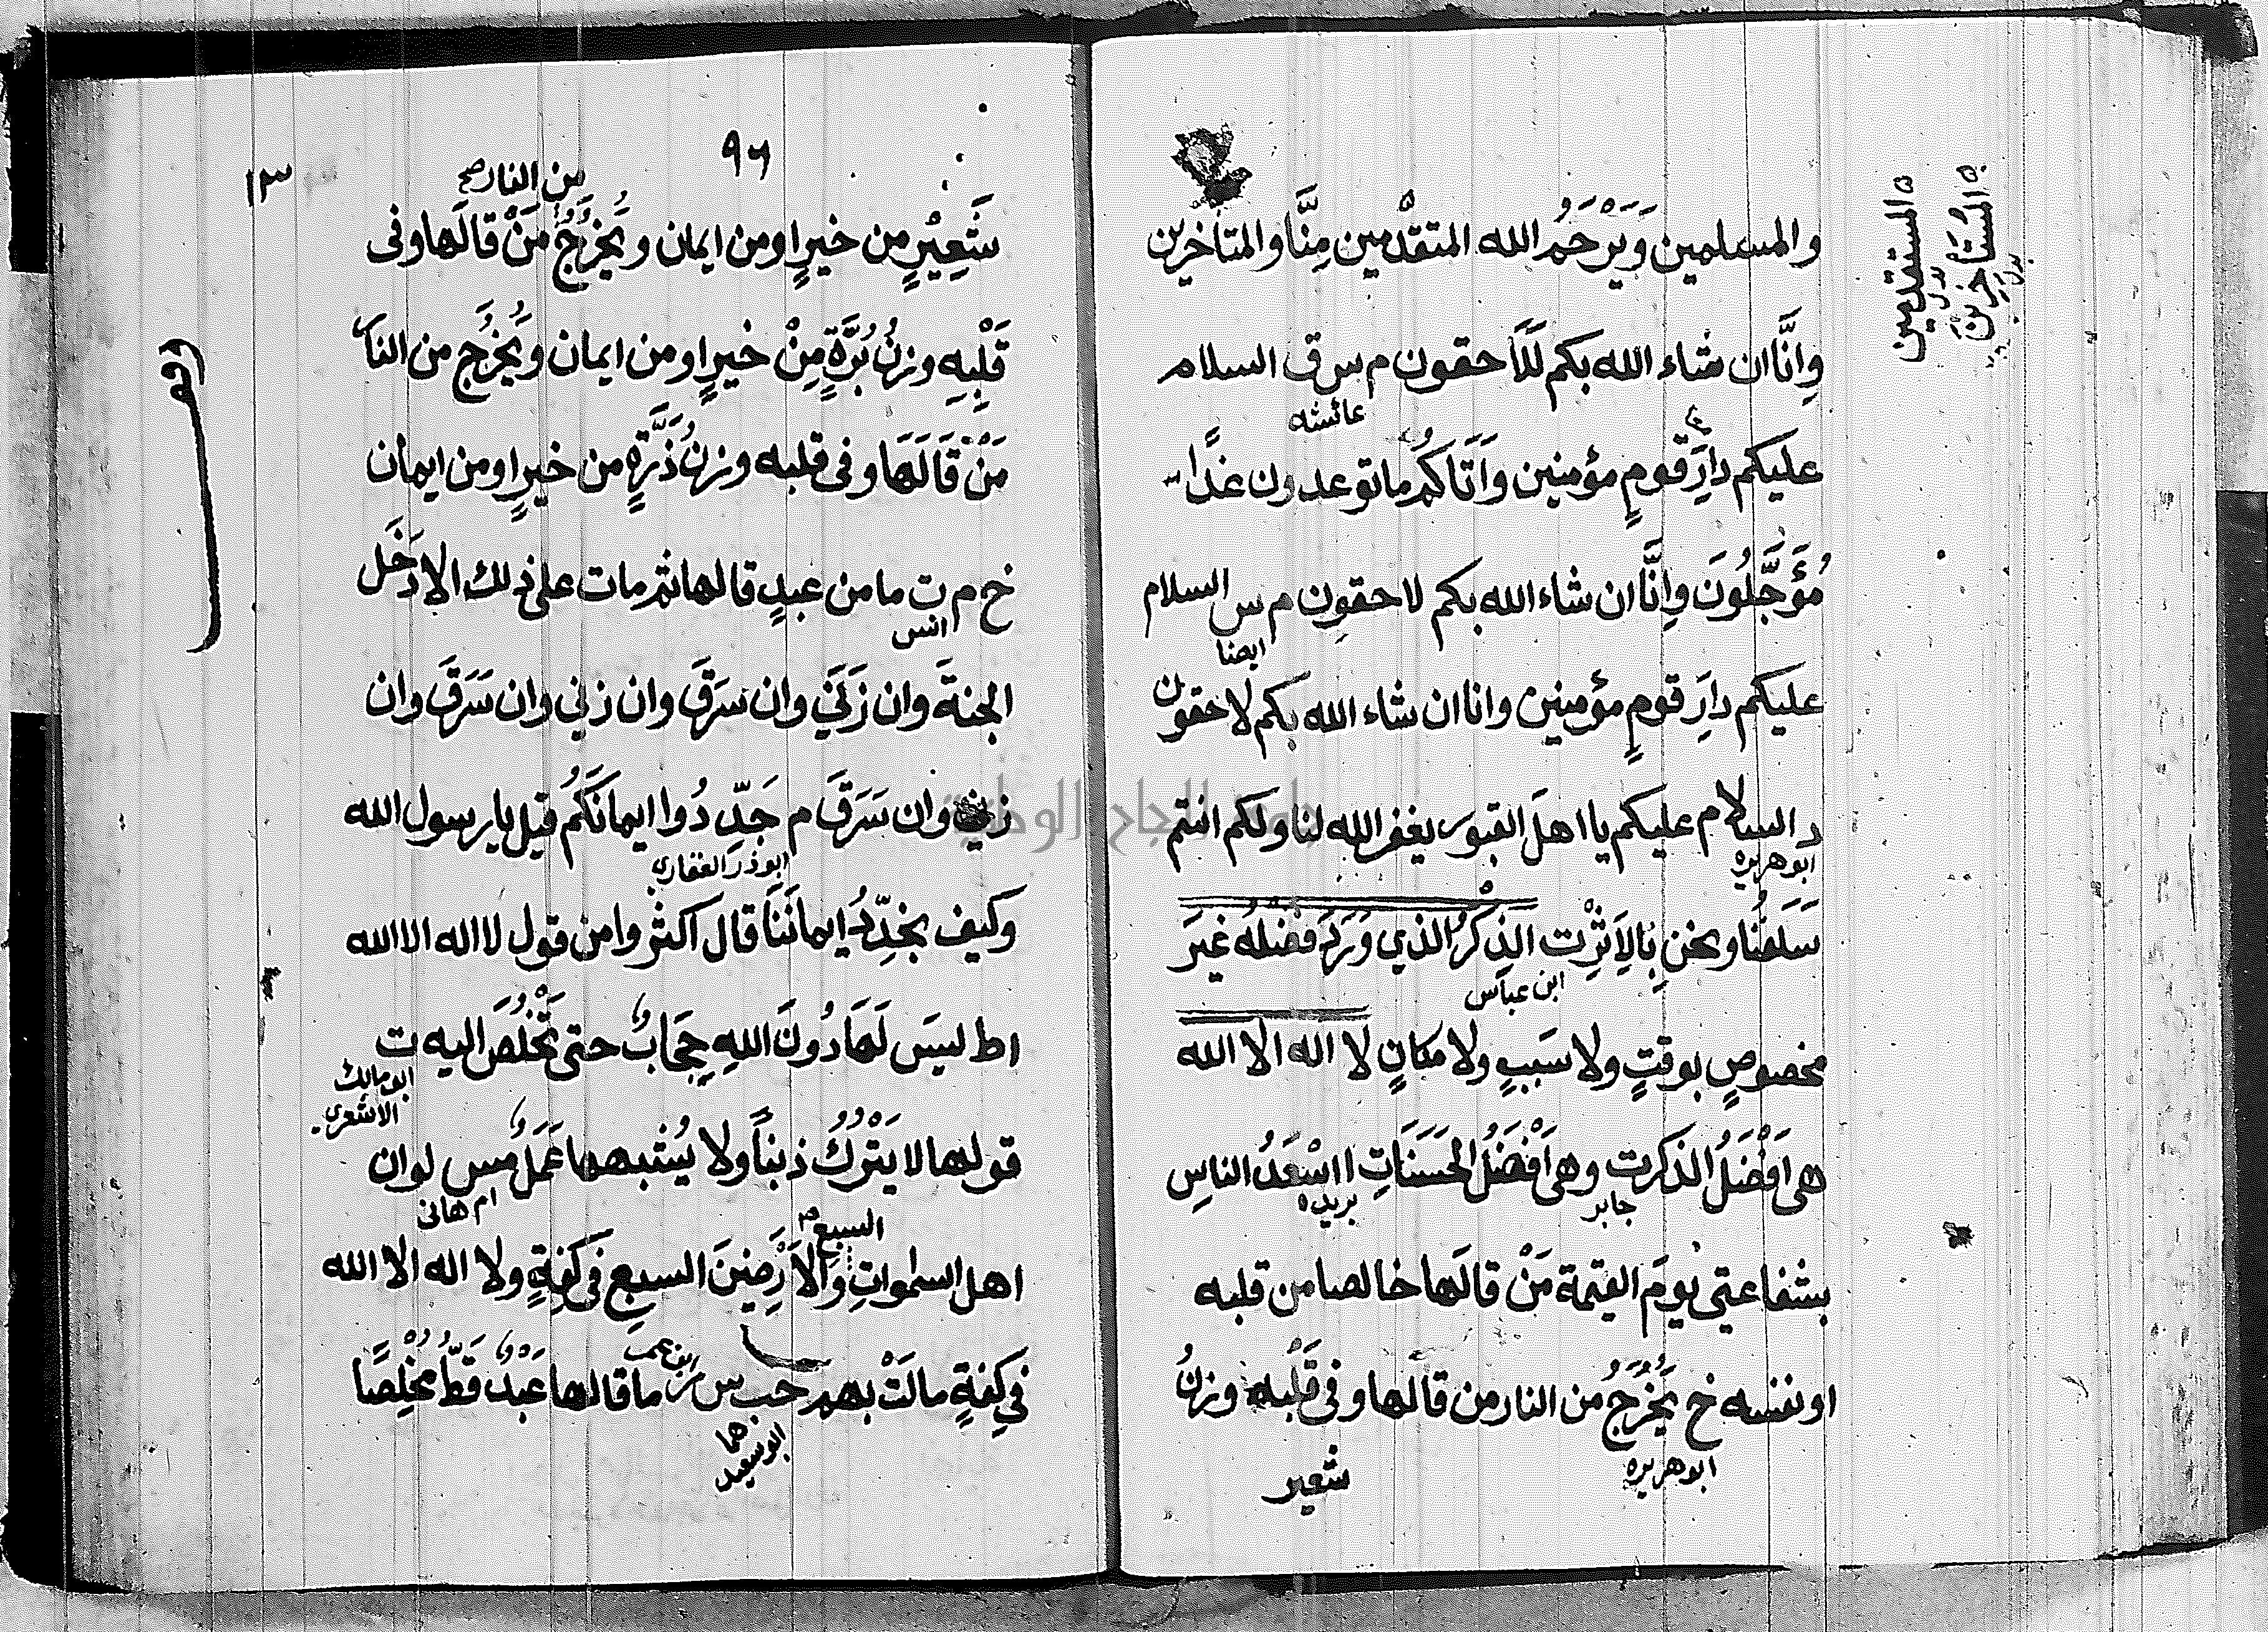 والمسلمين وَيَرْحَمُ الله المتقدْمين مِنَّا والمتأخرين
المستقدمين
المُسْتَأْخِرِينَ
وَاِنَّا ان شاء الله بكم لَلَاحقون م س ق السلام
عائشه
عليكم دارَ قومٍ مؤمنين وَاَتَاكُم ما توعدون غدًا
مُؤَجَّلُونَ وَاِنَّا ان شاء الله بكم لاحقون م س السلام
ايضا
عليكم دارَ قومٍ مؤمنين وانا ان شاء الله بكم لاحقون
د السلام عليكم يا اهلَ القبور يغفر الله لنا ولكم انتم
ابوهريره
سَلَفُنَا ونحن بِالاَثَرِ ت الذِكْرُ الذي وَرَدَ فضلهُ غيرَ
ابن عباس
مخصوصٍ بوقتٍ ولا سَببٍ ولا مكانٍ لا اله الا الله
هى اَفْضَلُ الذكر ت وهى اَفْضَلُ الحَسَنَاتِ ا اسْعَدُ الناسِ
جابر
بريده
بشفاعتى يومَ القيمة مَنْ قالَها خالصا من قلبه
او نفسه خ يُخْرَجُ من النار من قالها وفى قَلْبه وزنُ
ابوهريره
شعير
٩٦
١٣
من النار صح
شَعِيْرٍ من خيرٍ او من ايمان ويُخْرَجُ مَنْ قالَها وفى
قَلْبِهِ وزنُ بُرَّةٍ مِنْ خيرٍ او من ايمان ويُخْرَج من النار
مَنْ قَالَهَا وفى قلبه وزنُ ذَرَّةٍ من خيرٍ او من ايمان
خ م ت ما من عبدٍ قالها ثم مات على ذلك الا دَخَل
انس
الجنةَ وان زَنَي وان سَرَقَ وان زني وان سَرَقَ وان
زني وان سَرَقَ م جَدِّدُوا ايمانَكُم قيل يا رسول الله
ابوذر الغفارى
وكيف نجَدِّدُ ايمانَنَا قال اكثروا من قول لا اله الا الله
ا ط ليسَ لَهَا دُونَ اللهِ حِجَابٌ حتى تَخْلُصَ اليه ت
ابو مالك
الاشعرى
قولها لا يَتْرُكُ ذنباً ولا يُشْبِهها عَمَلٌ مس لو ان
ام هانى
السبع صح
اهل السموات وَالاَرَضِينَ السبعِ فى كِفةٍ ولا اله الا الله
فى كِفةٍ مالَتْ بهم حب س ر ما قالها عَبْدٌ قطُّ مُخْلِصًا
ابوسعيد